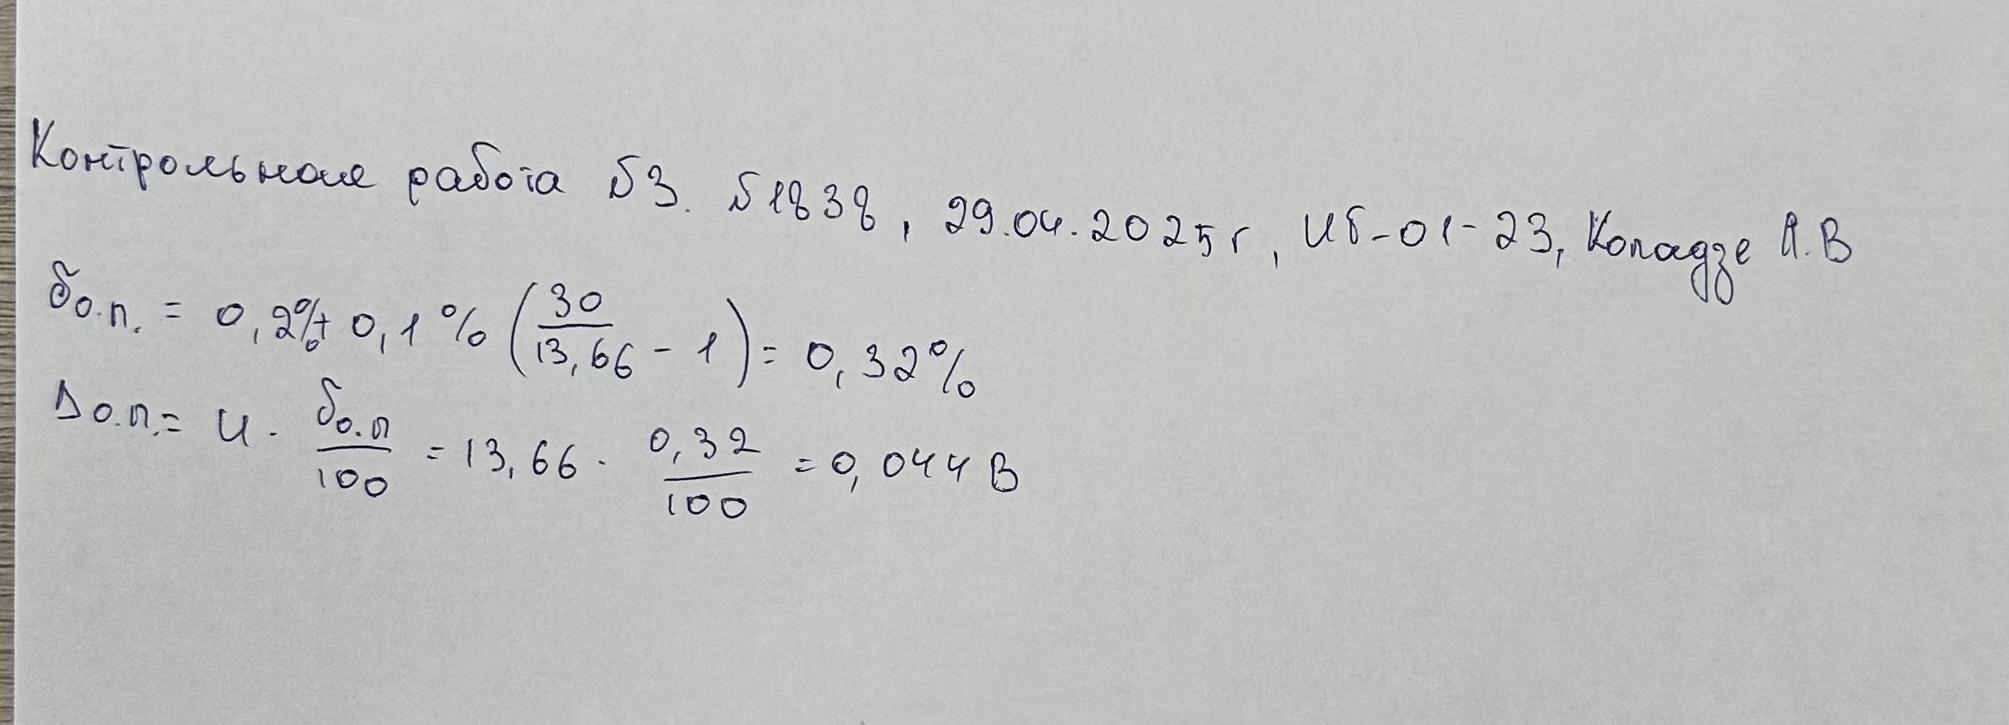 Контрольная работа №3. №1838, 29.04.2025г, ИБ-01-23, Копадзе А.В
δо.п. = 0,2% + 0,1% (30/13,66 - 1) = 0,32%
Δо.п. = U · δо.п/100 = 13,66 · 0,32/100 = 0,044 В